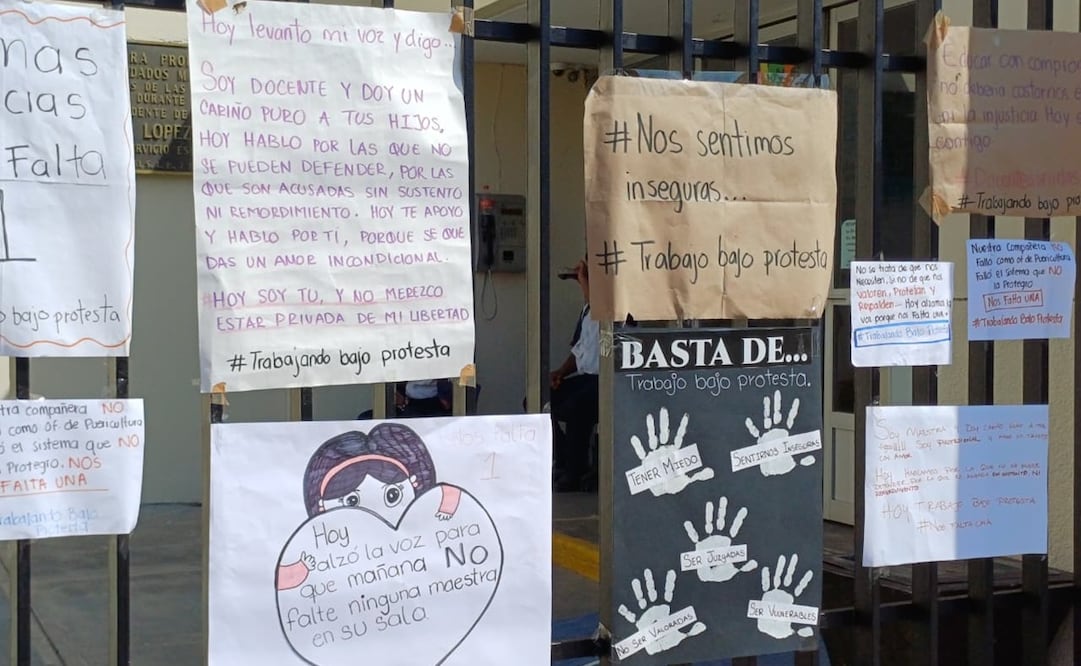 mas
cias
Falta
1
bajo protesta
Hoy levanto mi voz y digo...
SOY DOCENTE Y DOY UN
CARIÑO PURO A TUS HIJOS,
HOY HABLO POR LAS QUE NO
SE PUEDEN DEFENDER, POR LAS
QUE SON ACUSADAS SIN SUSTENTO
NI REMORDIMIENTO. HOY TE APOYO
Y HABLO POR TÍ, PORQUE SE QUE
DAS UN AMOR INCONDICIONAL.
#HOY SOY TU, Y NO MEREZCO
ESTAR PRIVADA DE MI LIBERTAD
#Trabajando bajo protesta
DURANTE
LOPEZ
#Nos sentimos
inseguras...
#Trabajo bajo protesta
Educar con
no debería costarnos
ni la injusticia Hoy
contigo
#Trabajando bajo
No se trata de que nos
Necesiten, Si no de que nos
Valoren, Protejan y
Respalden - Hoy alzamo la
voz porque nos Falta una.
#Trabajando Bajo
Nuestra Compañera NO
Falló como of. de Puericultura
Falló el Sistema que NO
la Protegio
Nos Falta UNA
#Trabajando Bajo Protesta
tra compañera NO
como of. de Puericultura
el sistema que NO
Protegio. NOS
FALTA UNA
Trabajando Bajo
Protesta
Nos Falta
1
Hoy
alzó la voz para
que mañana NO
falte ninguna maestra
en su sala.
BASTA DE...
Trabajo bajo protesta.
TENER MIEDO
SENTIRNOS INSEGURAS
SER JUZGADAS
NO SER VALORADAS
SER VULNERABLES
SOY MAESTRA Y
SOY PROFESIONAL Y
CON AMOR
HOY HABLAMOS POR LA QUE NO SE PUEDE
HOY TRABAJO BAJO PROTESTA
#NOS FALTA UNA